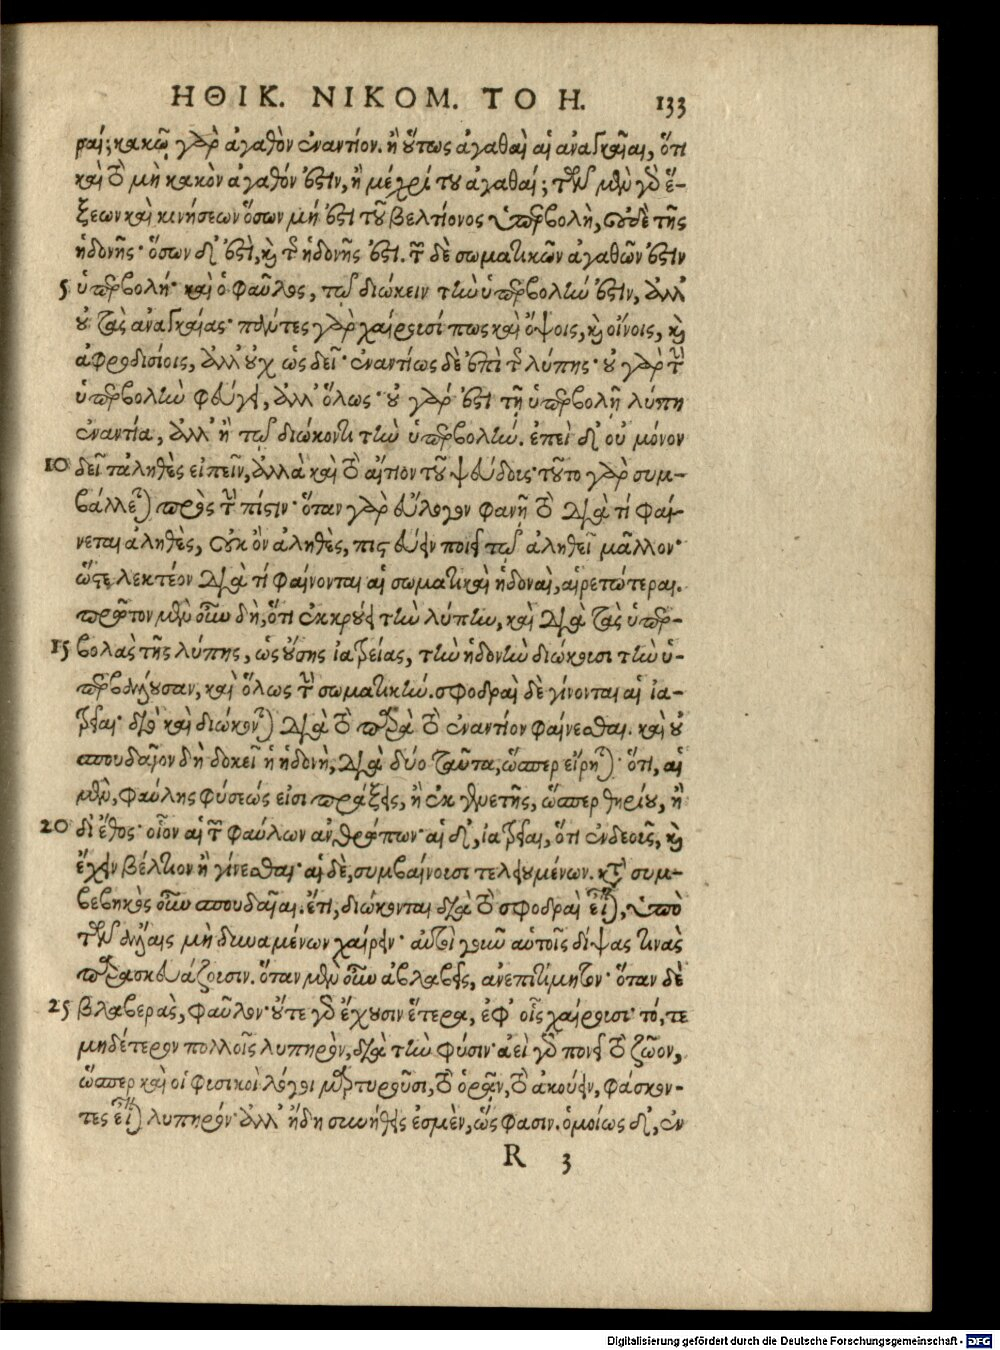 ΗΘΙΚ. ΝΙΚΟΜ. ΤΟ Η. 133
ραί; κακῷ γὰρ ἀγαθὸν ἐναντίον. ἢ οὕτως ἀγαθαὶ αἱ ἀναγκαῖαι, ὅτι
καὶ τὸ μὴ κακὸν ἀγαθόν ἐστιν, ἢ μέχρί του ἀγαθαί; τῶν μὲν γὸ ἕ-
ξεων καὶ κινήσεων ὅσων μή ἐστι τοῦ βελτίονος ὑπερβολὴ, οὐδὲ τῆς
ἡδονῆς· ὅσων δ' ἐστὶ, καὶ τῆς ἡδονῆς ἐστι. τῶν δὲ σωματικῶν ἀγαθῶν ἐστιν
5 ὑπερβολή· καὶ ὁ φαῦλος, τῷ διώκειν τὴν ὑπερβολήν ἐστιν, ἀλλ'
οὐ τὰς ἀναγκαίας· πάντες γὰρ χαίρουσί πως καὶ ὄψοις, καὶ οἴνοις, καὶ
ἀφροδισίοις, ἀλλ' οὐχ ὡς δεῖ· ἐναντίως δὲ ἐπὶ τῆς λύπης· οὐ γὰρ τὴν
ὑπερβολὴν φεύγει, ἀλλ' ὅλως· οὐ γάρ ἐστι τῇ ὑπερβολῇ λύπη
ἐναντία, ἀλλ' ἢ τῷ διώκοντι τὴν ὑπερβολήν. ἐπεὶ δ' οὐ μόνον
10 δεῖ τἀληθὲς εἰπεῖν, ἀλλὰ καὶ τὸ αἴτιον τοῦ ψεύδους· τοῦτο γὰρ συμ-
βάλλεται πρὸς τὴν πίστιν· ὅταν γὰρ εὔλογον φανῇ τὸ διὰ τί φαί-
νεται ἀληθὲς, οὐκ ὂν ἀληθὲς, πιστεύειν ποιεῖ τῷ ἀληθεῖ μᾶλλον·
ὥστε λεκτέον διὰ τί φαίνονται αἱ σωματικαὶ ἡδοναὶ, αἱρετώτεραι.
πρῶτον μὲν οὖν δὴ, ὅτι ἐκκρούει τὴν λύπην, καὶ διὰ τὰς ὑπερ-
15 βολὰς τῆς λύπης, ὡς οὔσης ἰατρείας, τὴν ἡδονὴν διώκουσι τὴν ὑ-
περβάλλουσαν, καὶ ὅλως τὴν σωματικήν. σφοδραὶ δὲ γίνονται αἱ ἰα-
τρεῖαι· διὸ καὶ διώκονται διὰ τὸ παρὰ τὸ ἐναντίον φαίνεσθαι. καὶ οὐ
σπουδαῖον δὴ δοκεῖ ἡ ἡδονὴ, διὰ δύο ταῦτα, ὥσπερ εἴρηται· ὅτι, αἱ
μὲν, φαύλης φύσεώς εἰσι πράξεις, ἢ ἐκ γενετῆς, ὥσπερ θηρίου, ἢ
20 δι' ἔθος· οἷον αἱ τῶν φαύλων ἀνθρώπων· αἱ δ', ἰατρεῖαι, ὅτι ἐνδεοῦς, καὶ
ἔχειν βέλτιον ἢ γίνεσθαι· αἱ δὲ, συμβαίνουσι τελουμένων. κατὰ συμ-
βεβηκὸς οὖν σπουδαῖαι. ἔτι, διώκονται διὰ τὸ σφοδραὶ εἶναι, ὑπὸ
τῶν ἄλλαις μὴ δυναμένων χαίρειν· αὐτοὶ γοῦν αὑτοῖς δίψας τινὰς
παρασκευάζουσιν. ὅταν μὲν οὖν ἀβλαβεῖς, ἀνεπιτίμητον· ὅταν δὲ
25 βλαβερὰς, φαῦλον· οὔτε γὰρ ἔχουσιν ἕτερα, ἐφ' οἷς χαίρουσι· τό, τε
μηδέτερον πολλοῖς λυπηρὸν, διὰ τὴν φύσιν· ἀεὶ γὰρ πονεῖ τὸ ζῶον,
ὥσπερ καὶ οἱ φυσικοὶ λόγοι μαρτυροῦσι, τὸ ὁρᾷν, τὸ ἀκούειν, φάσκον-
τες εἶναι λυπηρόν· ἀλλ' ἤδη συνήθεις ἐσμὲν, ὥς φασιν. ὁμοίως δ', ἐν
R 3
Digitalisierung gefördert durch die Deutsche Forschungsgemeinschaft - DFG